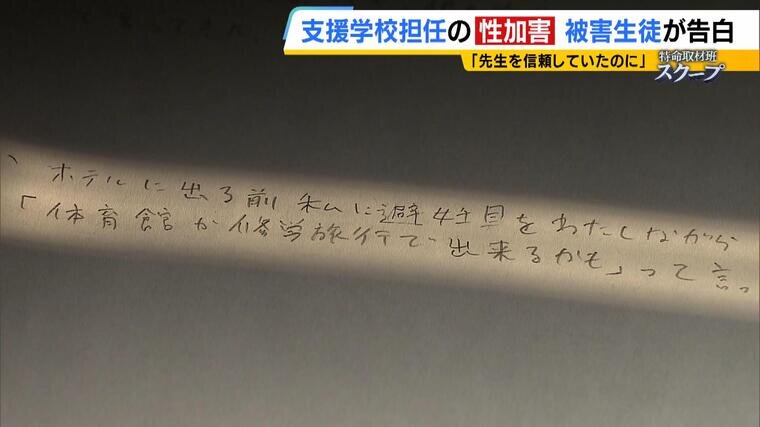 支援学校担任の性加害 被害生徒が告白
「先生を信頼していたのに」
特命取材班
スクープ
ホテルに出る前私に避妊具をわたしながら
「体育館か修学旅行で出来るかも」って言っ